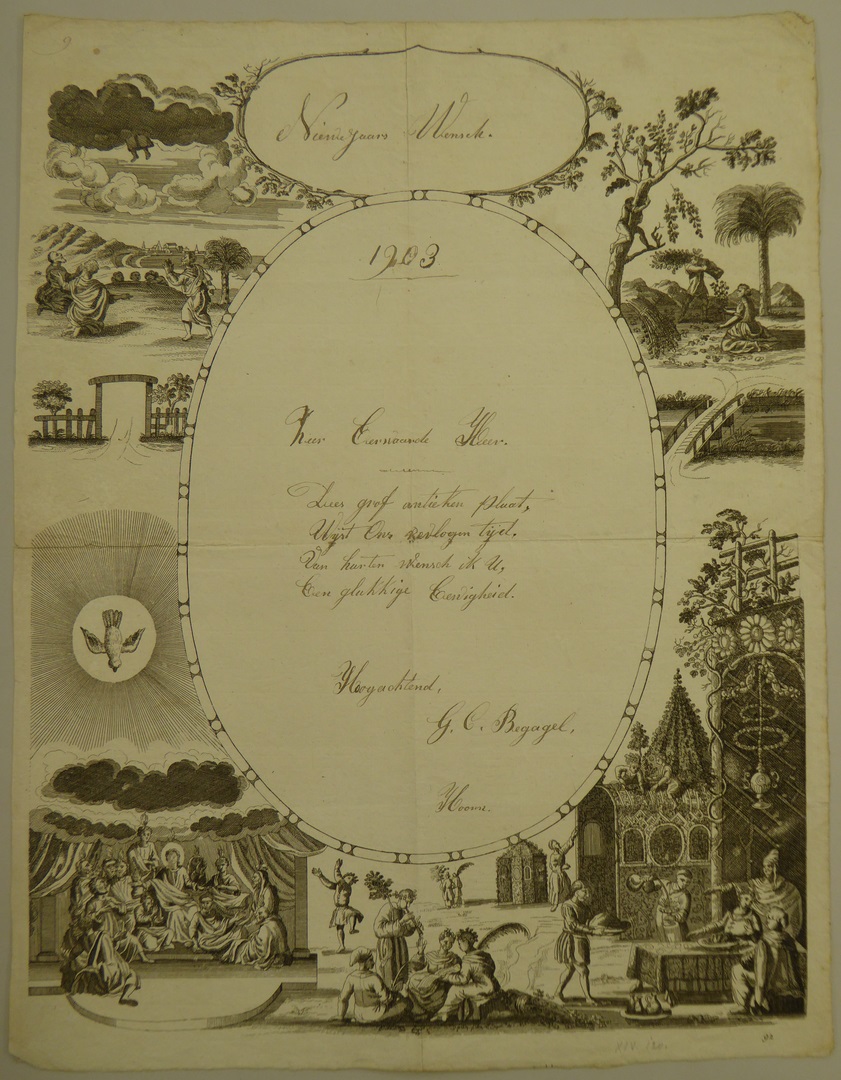 9
Nieuwjaars Wensch.
1903
Zeer Eerwaarde Heer.
Deze grof antieken plaat,
Wijst Ons vervlogen tijd.
Van harten Wensch ik U,
Een glukkige Eewigheid.
Hoogachtend,
G. C. Begagel,
Hoorn.
XIV. 120.